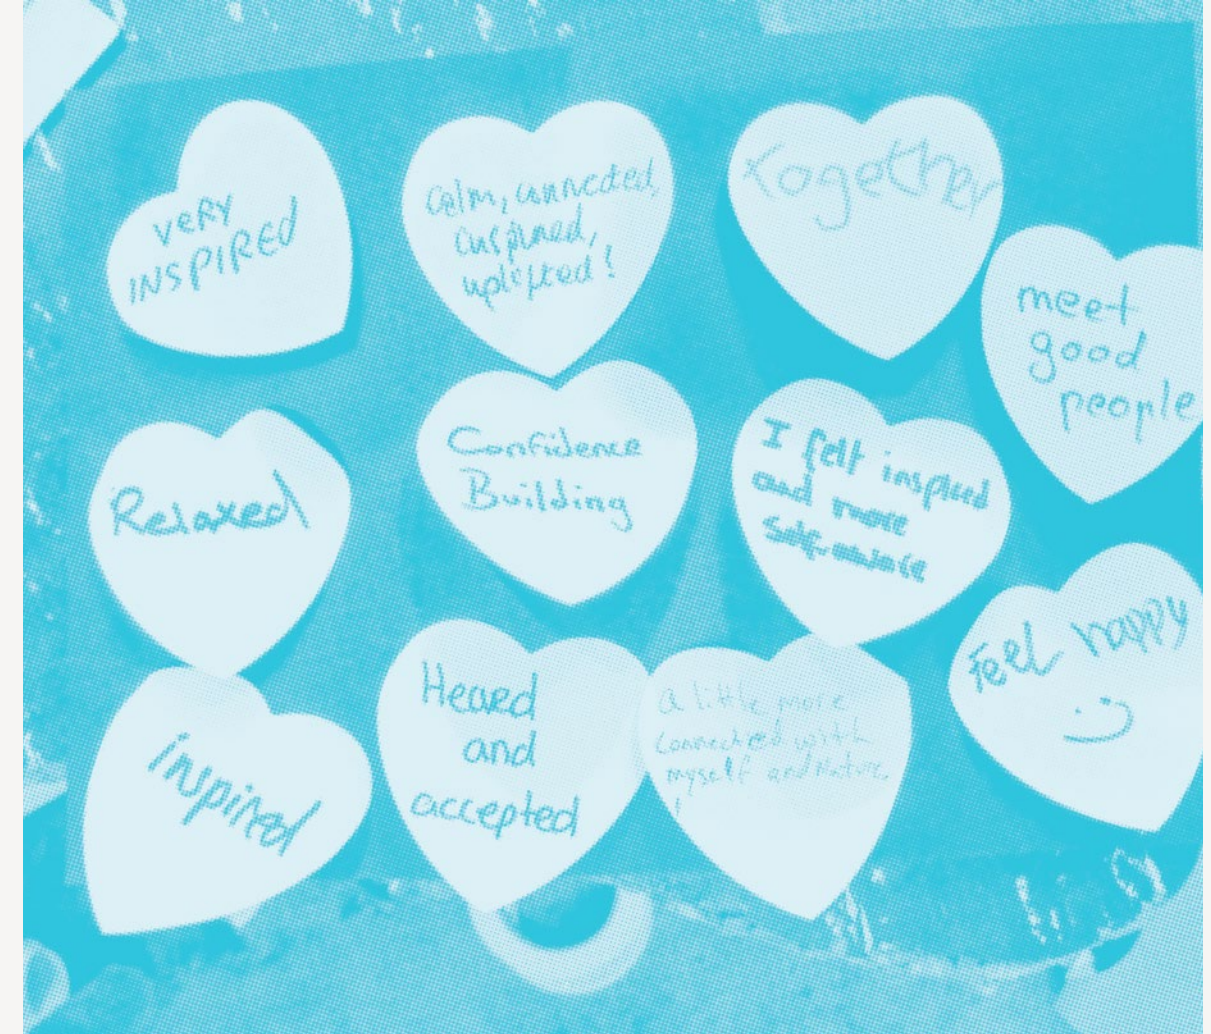 VERY
INSPIRED
Calm, connected,
inspired,
uplifted!
together
meet
good
people
Relaxed
Confidence
Building
I felt inspired
and more
Self-aware
Feel happy
inspired
Heard
and
accepted
A little more
connected with
myself and Nature